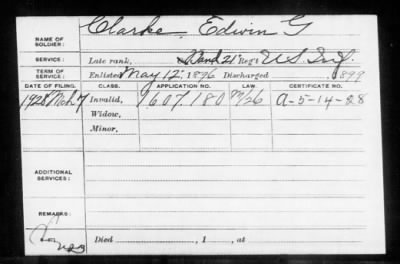 NAME OF SOLDIER: Clarke, Edwin G
SERVICE: Late rank, Band 21" Reg't U S Inf.
TERM OF SERVICE: Enlisted May 12, 1896 Discharged , 1899
DATE OF FILING. CLASS. APPLICATION NO. LAW. CERTIFICATE NO.
1928 Mch 7 Invalid, 1607180 A-5-14-28
Widow,
Minor,
ADDITIONAL SERVICES:
REMARKS:
Died , 1 , at